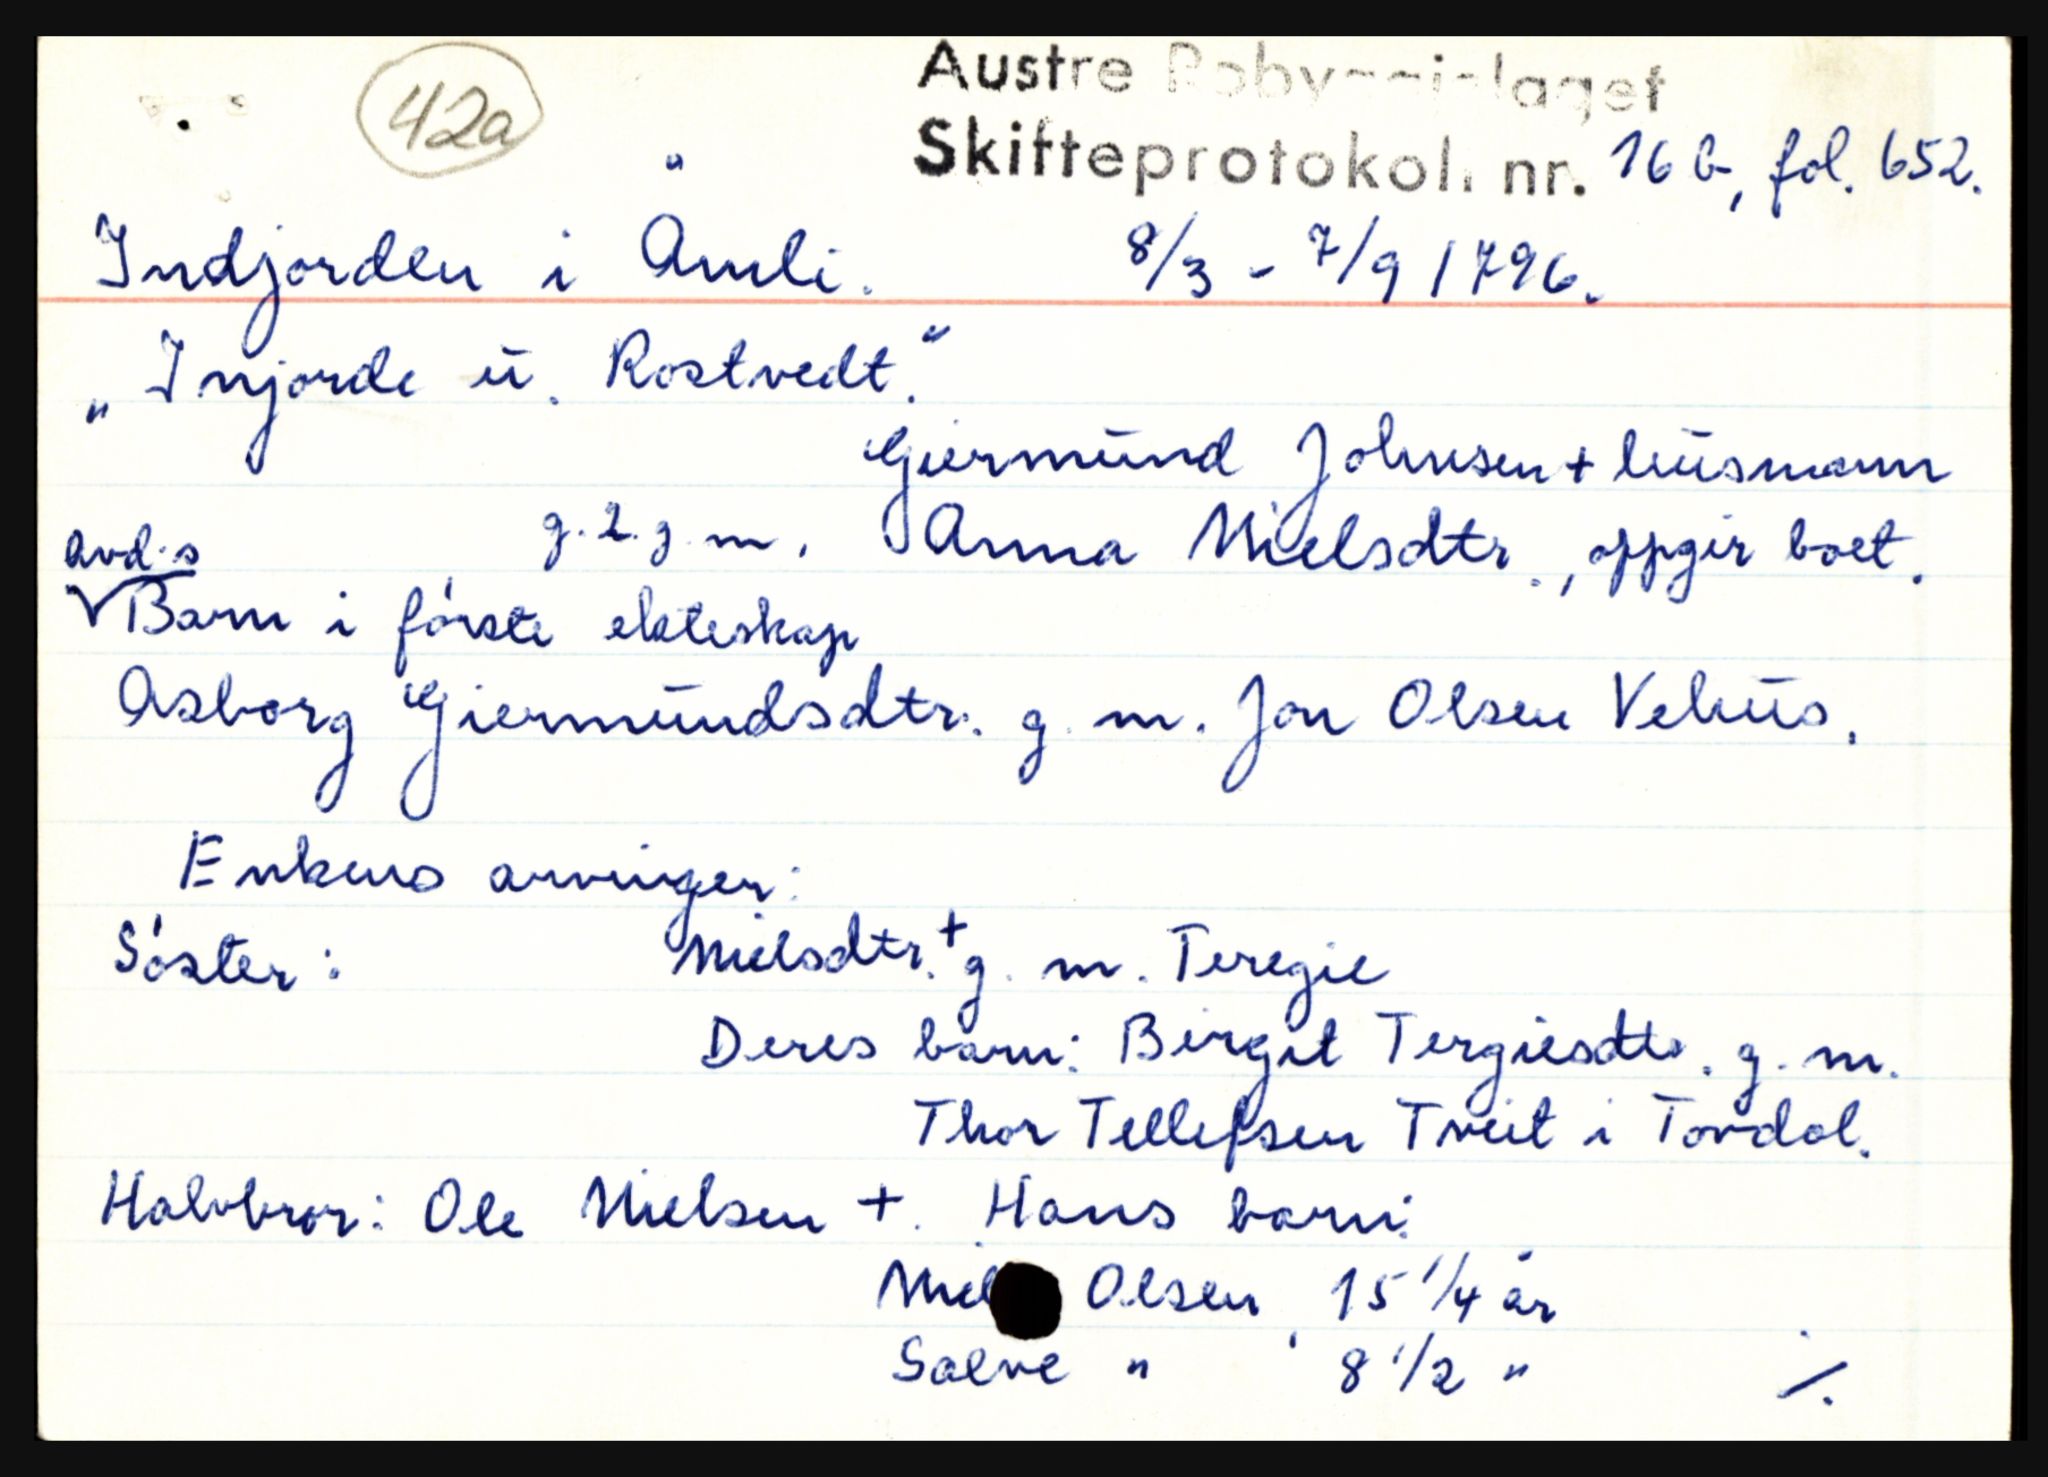 42a
Austre Robyggjelaget
Skifteprotokoll nr. 16 b, fol. 652.
Indjorden i Åmli. 8/3 - 7/9 1796.
„Injorde u. Rostvedt."
Giermund Johnsen + husmann
g. 2. g. m. Anna Nielsdtr., oppgir boet.
avd.s
Barn i første ekteskap
Asborg Giermundsdtr. g. m. Jon Olsen Vehus.
Enkens arvinger:
Søster: Nielsdtr. + g. m. Teregie
Deres barn: Birgit Tergiesdtr. g. m.
Thor Tellefsen Tveit i Tovdal.
Halvbror: Ole Nielsen +. Hans barn:
Niel Olsen, 15 1/4 år
Salve " 8 1/2 "
./.